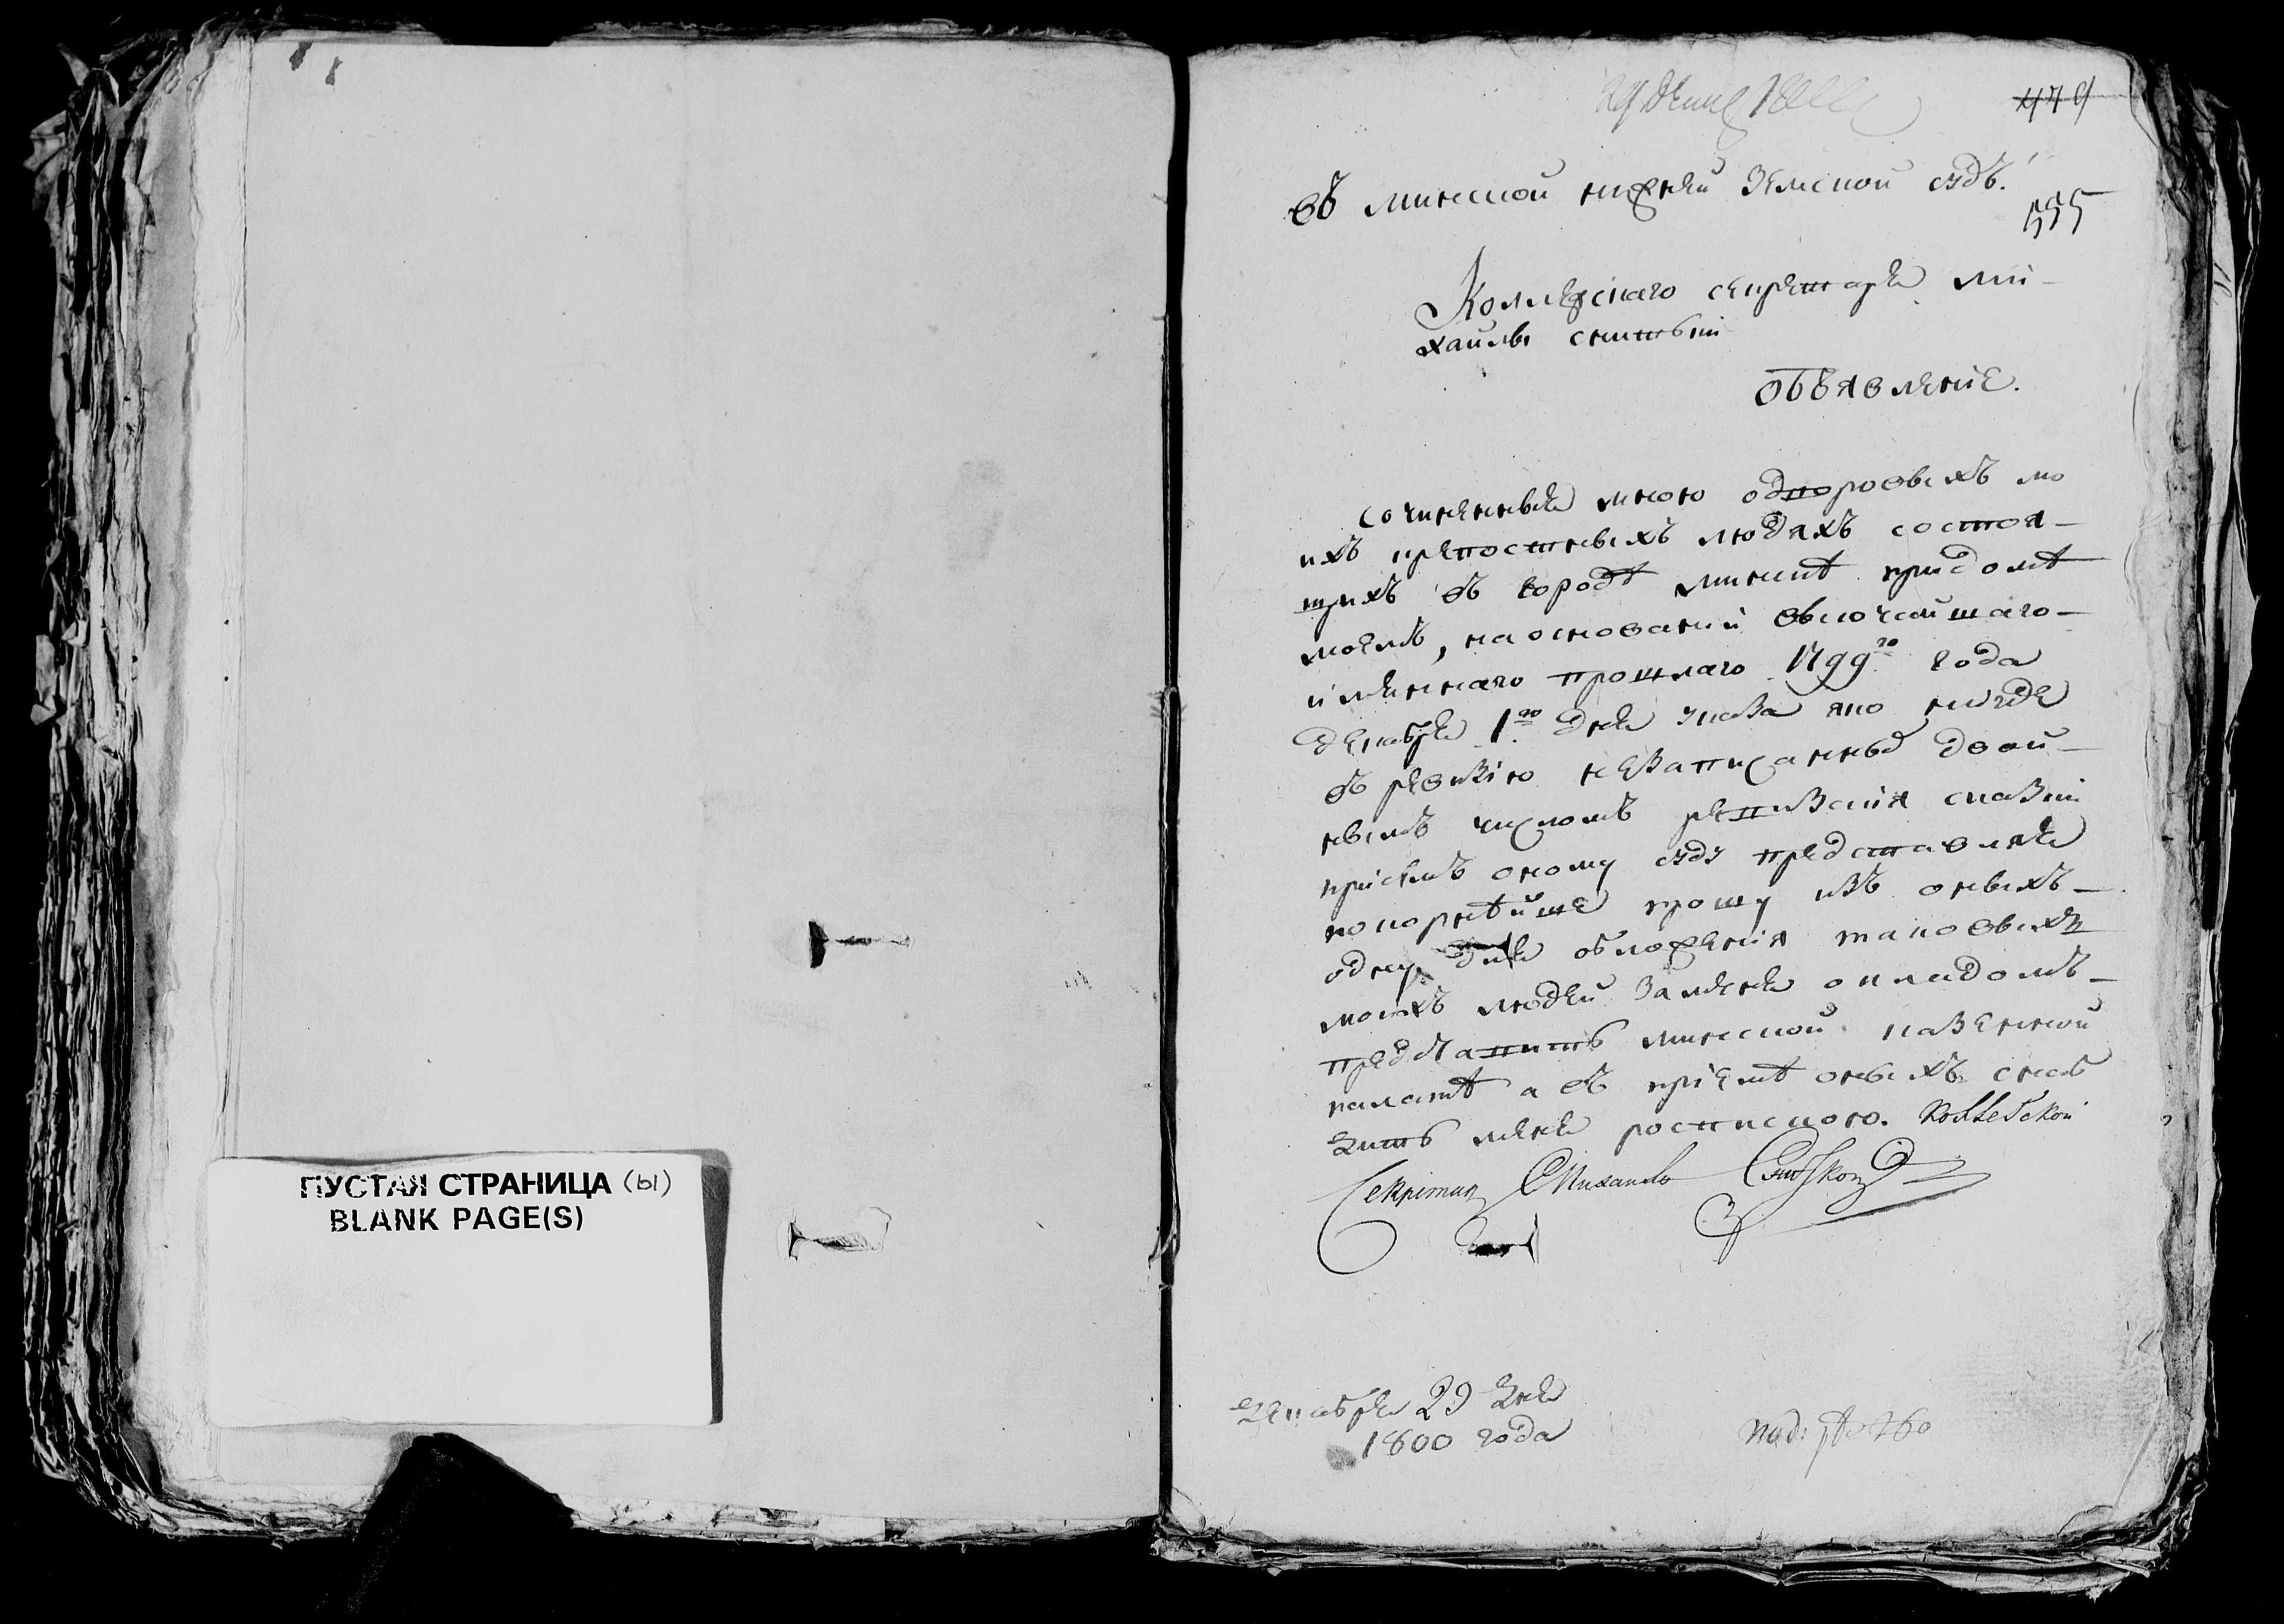 ПУСТАЯ СТРАНИЦА (ы)
BLANK PAGE(S)
479
въ минской нижней земской судъ!
555
Коллежскаго секретаря Ми-
хайлы
объявление.
сочиненные мною одворовыхъ мо
ихъ крепостныхъ людяхъ состоя-
щихъ въ городѣ минскѣ придомѣ
моемъ, на основании высочайшаго-
имяннаго прошлаго 1799го года
декабря 1го дня указа яко нигде
въ ревизию незаписанные двой-
нымъ числомъ ревизския скаски
присемъ оному суду представляя
покорнѣйше прошу изъ оныхъ-
одну для обложения таковыхъ
моихъ людей заменя окладомъ-
представить минской казенной
палатѣ а въ приемѣ оныхъ снаб
дить меня роспискою. Коллежской
Секретарь Михайло
декабря 29 дня
1800 года